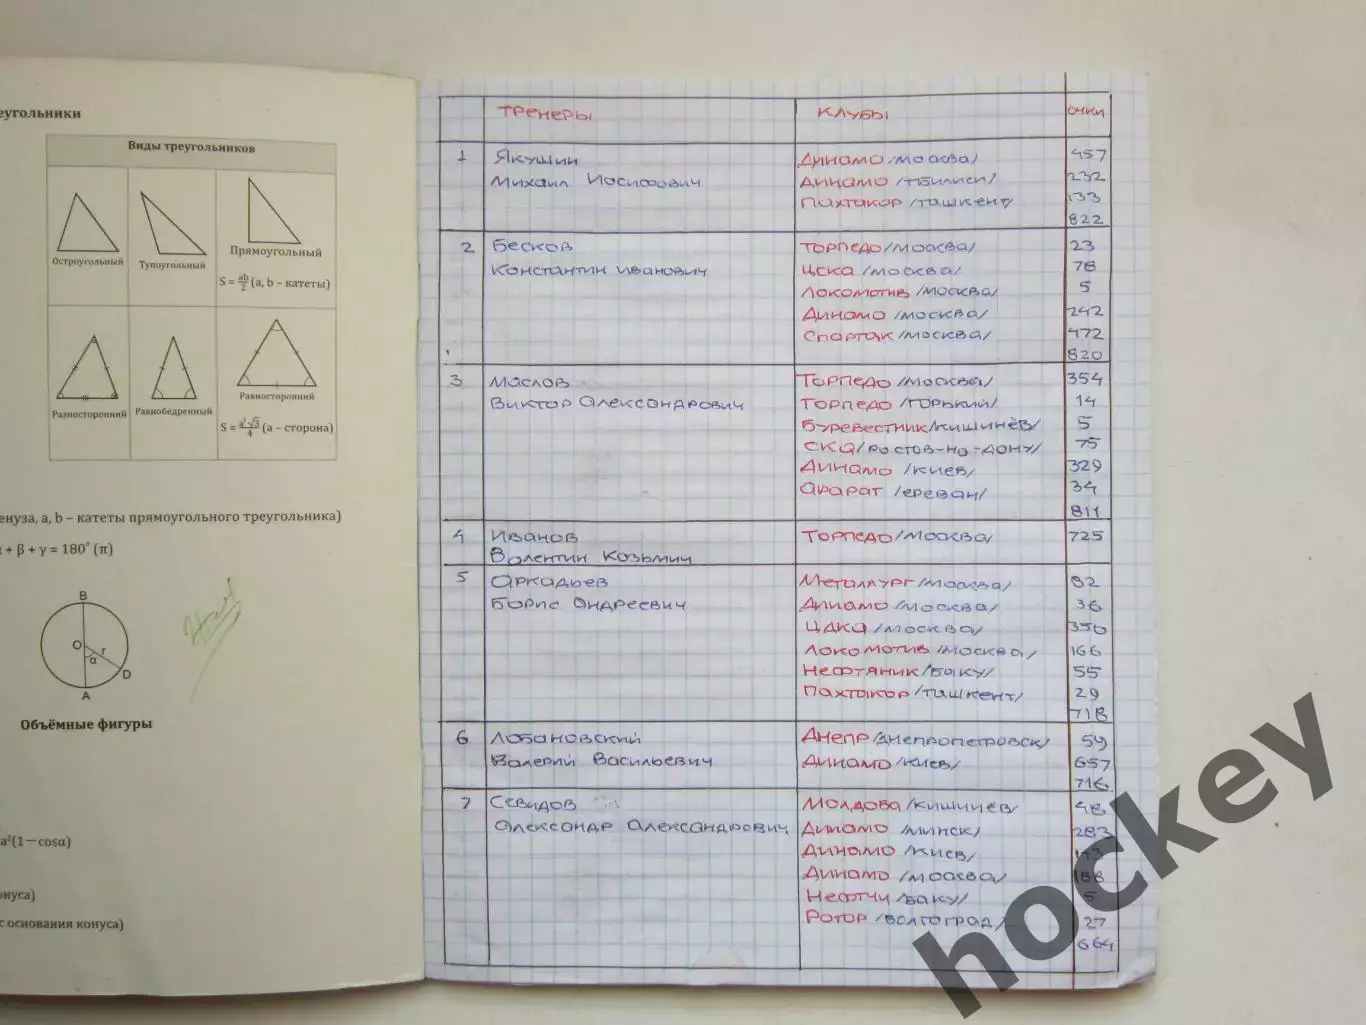 еугольники
Виды треугольников
Остроугольный
Тупоугольный
Прямоугольный
S = ab/2 (a, b – катеты)
Разносторонний
Равнобедренный
Равносторонний
S = a²√3/4 (a – сторона)
енуза, a, b – катеты прямоугольного треугольника)
α + β + γ = 180° (π)
B
O r
α
D
A
Объёмные фигуры
a²(1 — cosα)
онуса)
с основания конуса)
ТРЕНЕРЫ КЛУБЫ ОЧКИ
1 Якушин Динамо /Москва/ 457
Михаил Иосифович Динамо /Тбилиси/ 232
Пахтакор /Ташкент/ 133
822
2 Бесков Торпедо /Москва/ 23
Константин Иванович ЦСКА /Москва/ 78
Локомотив /Москва/ 5
Динамо /Москва/ 242
Спартак /Москва/ 472
820
3 Маслов Торпедо /Москва/ 354
Виктор Александрович Торпедо /Горький/ 14
Буревестник /Кишинёв/ 5
СКА /Ростов-на-Дону/ 75
Динамо /Киев/ 329
Арарат /Ереван/ 34
811
4 Иванов Торпедо /Москва/ 725
Валентин Козьмич
5 Аркадьев Металлург /Москва/ 82
Борис Андреевич Динамо /Москва/ 36
ЦДКА /Москва/ 350
Локомотив /Москва/ 166
Нефтяник /Баку/ 55
Пахтакор /Ташкент/ 29
718
6 Лобановский Днепр /Днепропетровск/ 59
Валерий Васильевич Динамо /Киев/ 657
716
7 Севидов Молдова /Кишинёв/ 48
Александр Александрович Динамо /Минск/ 283
Динамо /Киев/
Динамо /Москва/ 188
Нефтчи /Баку/ 5
Ротор /Волгоград/ 27
664
hockey